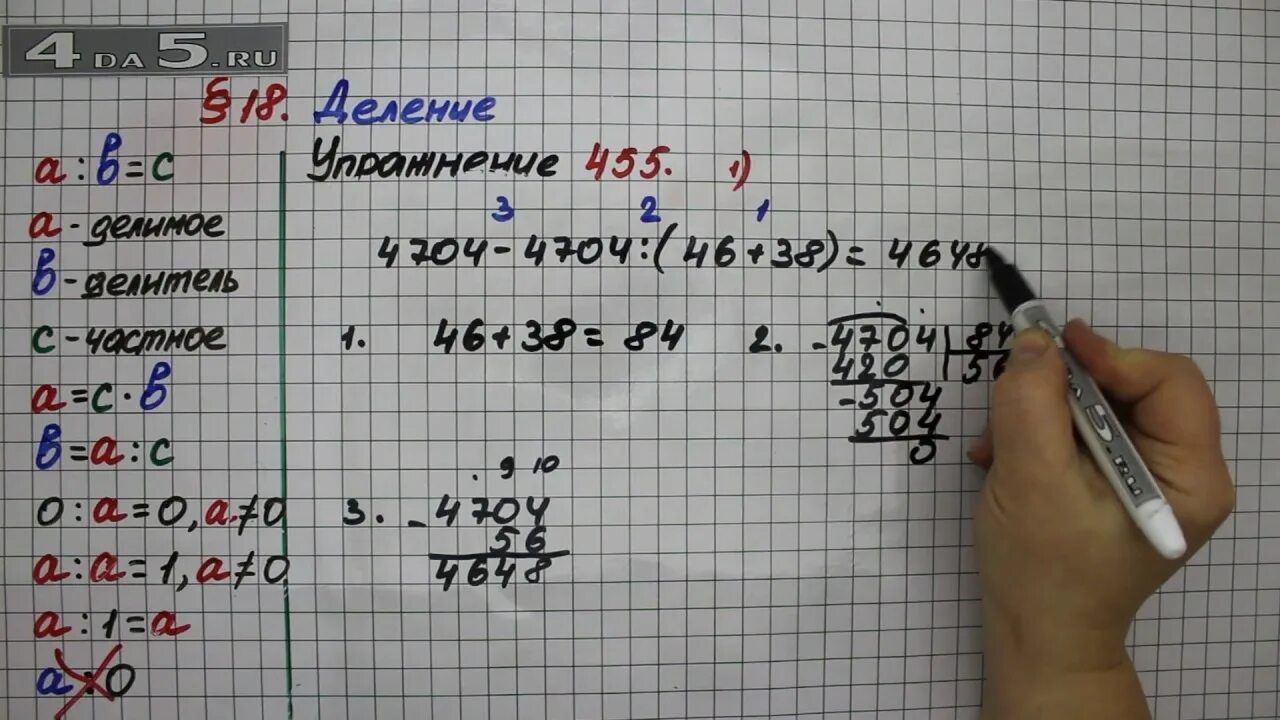 4DA5.RU
§ 18. Деление
a : b = c
a - делимое
b - делитель
c - частное
a = c · b
b = a : c
0 : a = 0, a ≠ 0
a : a = 1, a ≠ 0
a : 1 = a
a : 0
Упражнение 455. 1)
3 2 1
4704 - 4704 : ( 46 + 38 ) = 4648
1. 46 + 38 = 84
2. - 4704 | 84
420 | 56
- 504
504
0
. 9 10
3. - 4704
56
4648
5.RU